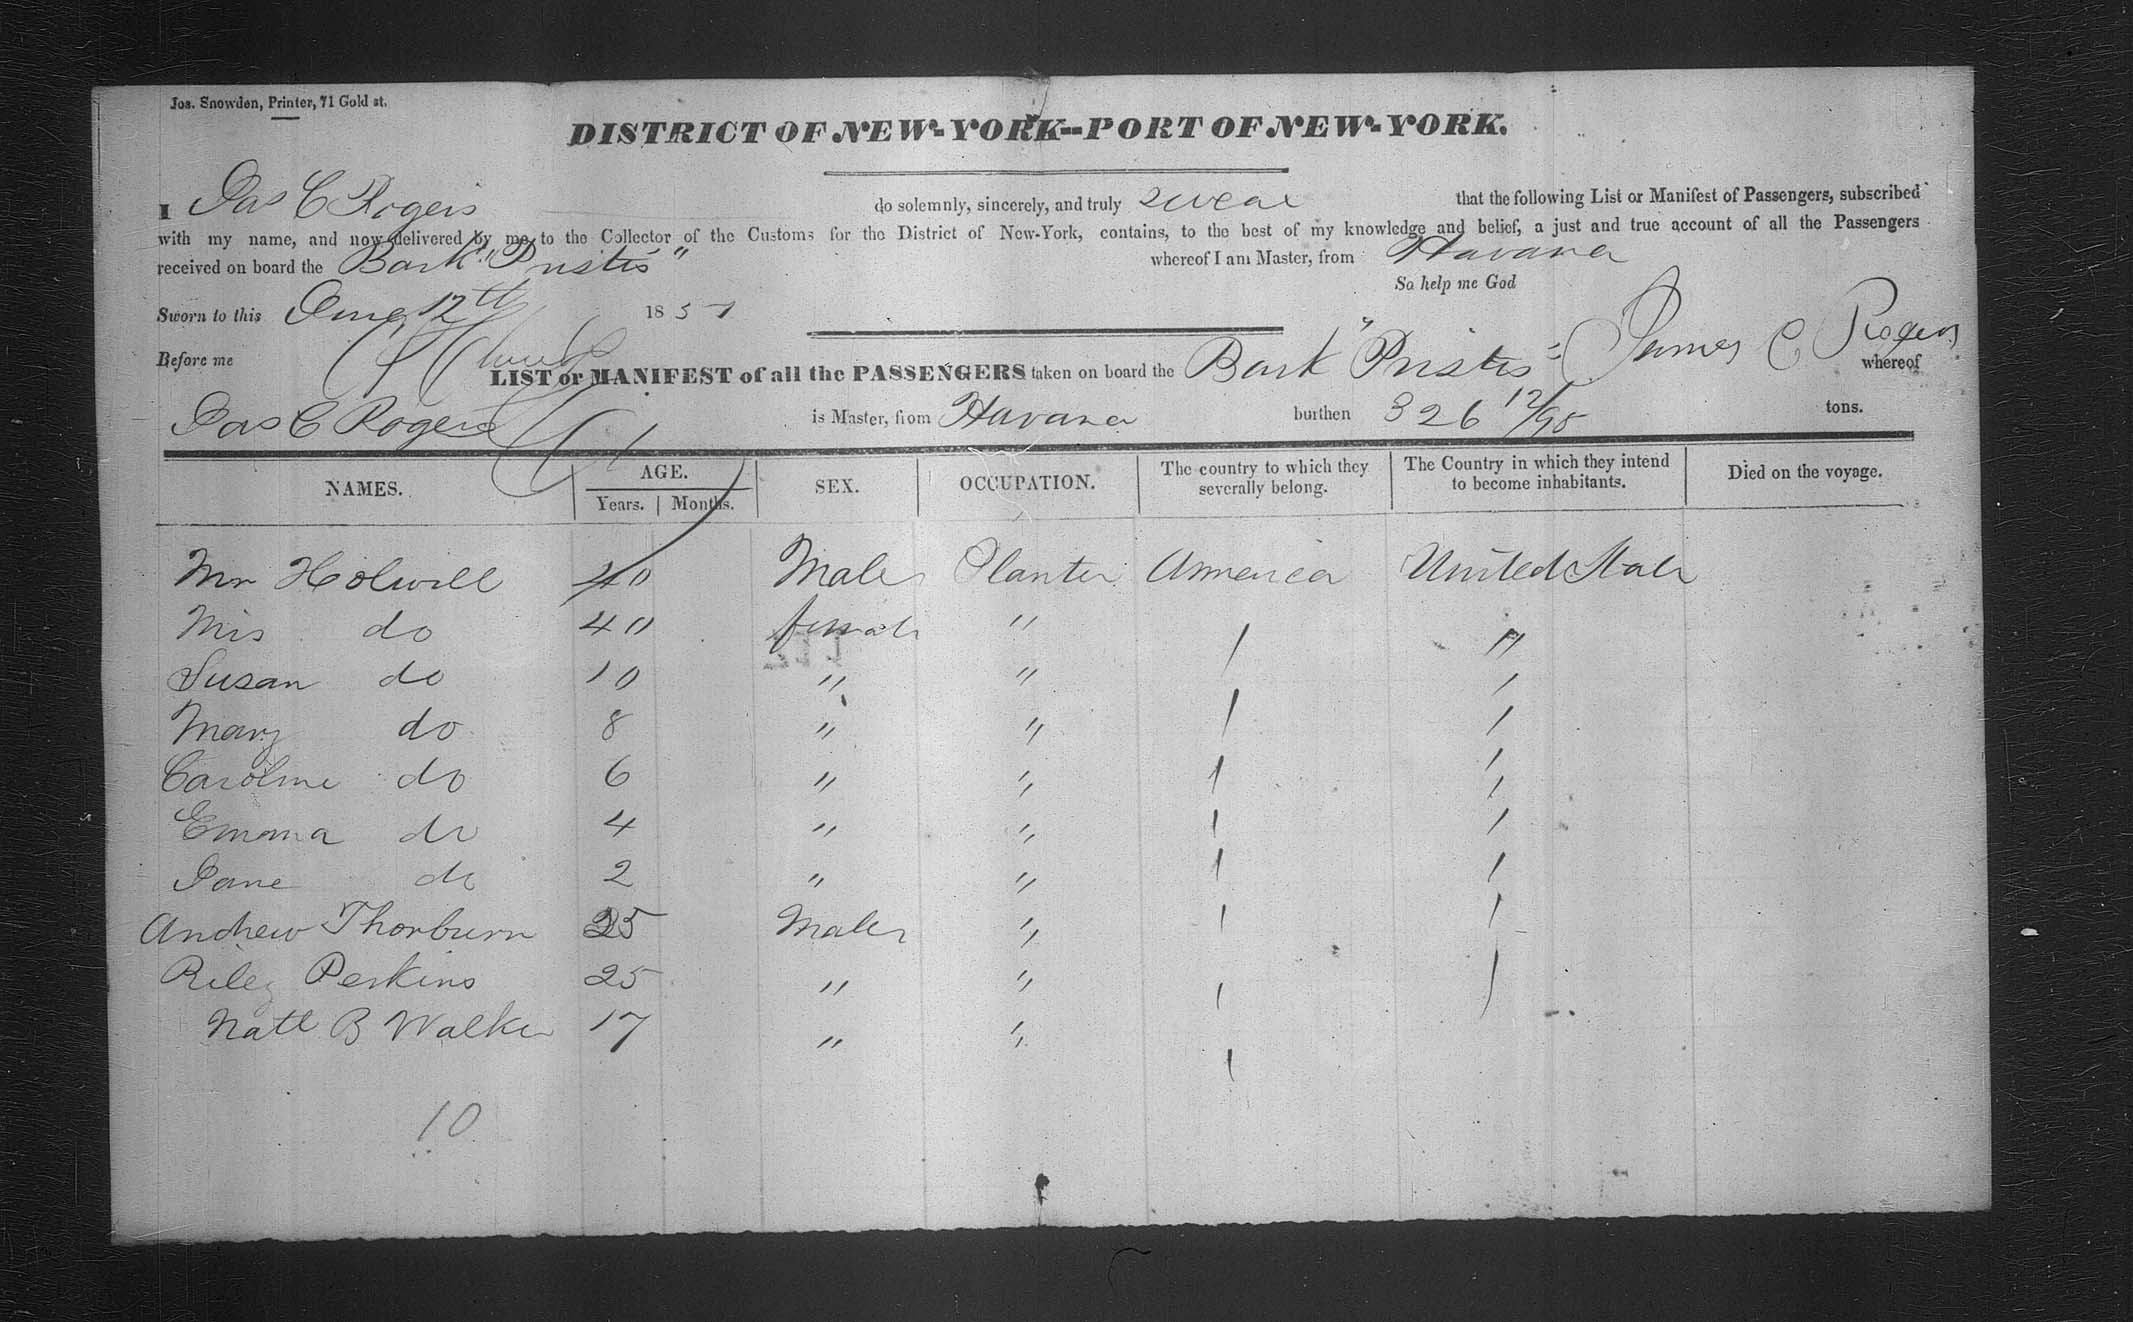 Jos. Snowden, Printer, 71 Gold st.
DISTRICT OF NEW-YORK--PORT OF NEW-YORK.
I Jas C Rogers do solemnly, sincerely, and truly swear that the following List or Manifest of Passengers, subscribed
with my name, and now delivered by me to the Collector of the Customs for the District of New-York, contains, to the best of my knowledge and belief, a just and true account of all the Passengers
received on board the Bark "Pristis" whereof I am Master, from Havana
So help me God
Sworn to this Aug 12th 1851
Before me James C Rogers
LIST or MANIFEST of all the PASSENGERS taken on board the Bark "Pristis" whereof
Jas C Rogers is Master, from Havana burthen 326 12/95 tons.
NAMES. AGE. Years. Months. SEX. OCCUPATION. The country to which they severally belong. The Country in which they intend to become inhabitants. Died on the voyage.
Mr Holwill 40 Males Planter America United States
Mrs do 40 female " / "
Susan do 10 " " / /
Mary do 8 " " / /
Caroline do 6 " " / /
Emma do 4 " " / /
Jane do 2 " " / /
Andrew Thorburn 25 Males " / /
Riley Perkins 25 " " / /
Natl B Walker 17 " " /
10